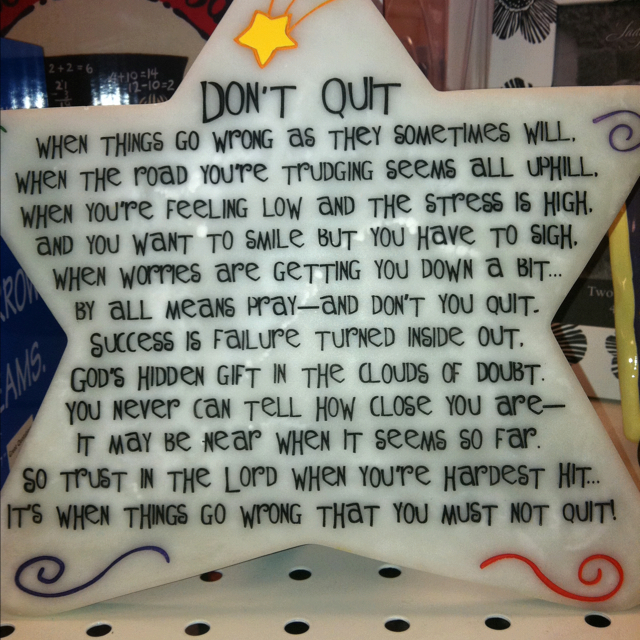 2+2=6
4+10=14
12-10=2
DON'T QUIT
WHEN THINGS GO WRONG AS THEY SOMETIMES WILL.
WHEN THE ROAD YOU'RE TRUDGING SEEMS ALL UPHILL.
WHEN YOU'RE FEELING LOW AND THE STRESS IS HIGH.
AND YOU WANT TO SMILE BUT YOU HAVE TO SIGH.
WHEN WORRIES ARE GETTING YOU DOWN A BIT...
BY ALL MEANS PRAY—AND DON'T YOU QUIT.
SUCCESS IS FAILURE TURNED INSIDE OUT.
GOD'S HIDDEN GIFT IN THE CLOUDS OF DOUBT.
YOU NEVER CAN TELL HOW CLOSE YOU ARE—
IT MAY BE NEAR WHEN IT SEEMS SO FAR.
SO TRUST IN THE LORD WHEN YOU'RE HARDEST HIT...
IT'S WHEN THINGS GO WRONG THAT YOU MUST NOT QUIT!
Two